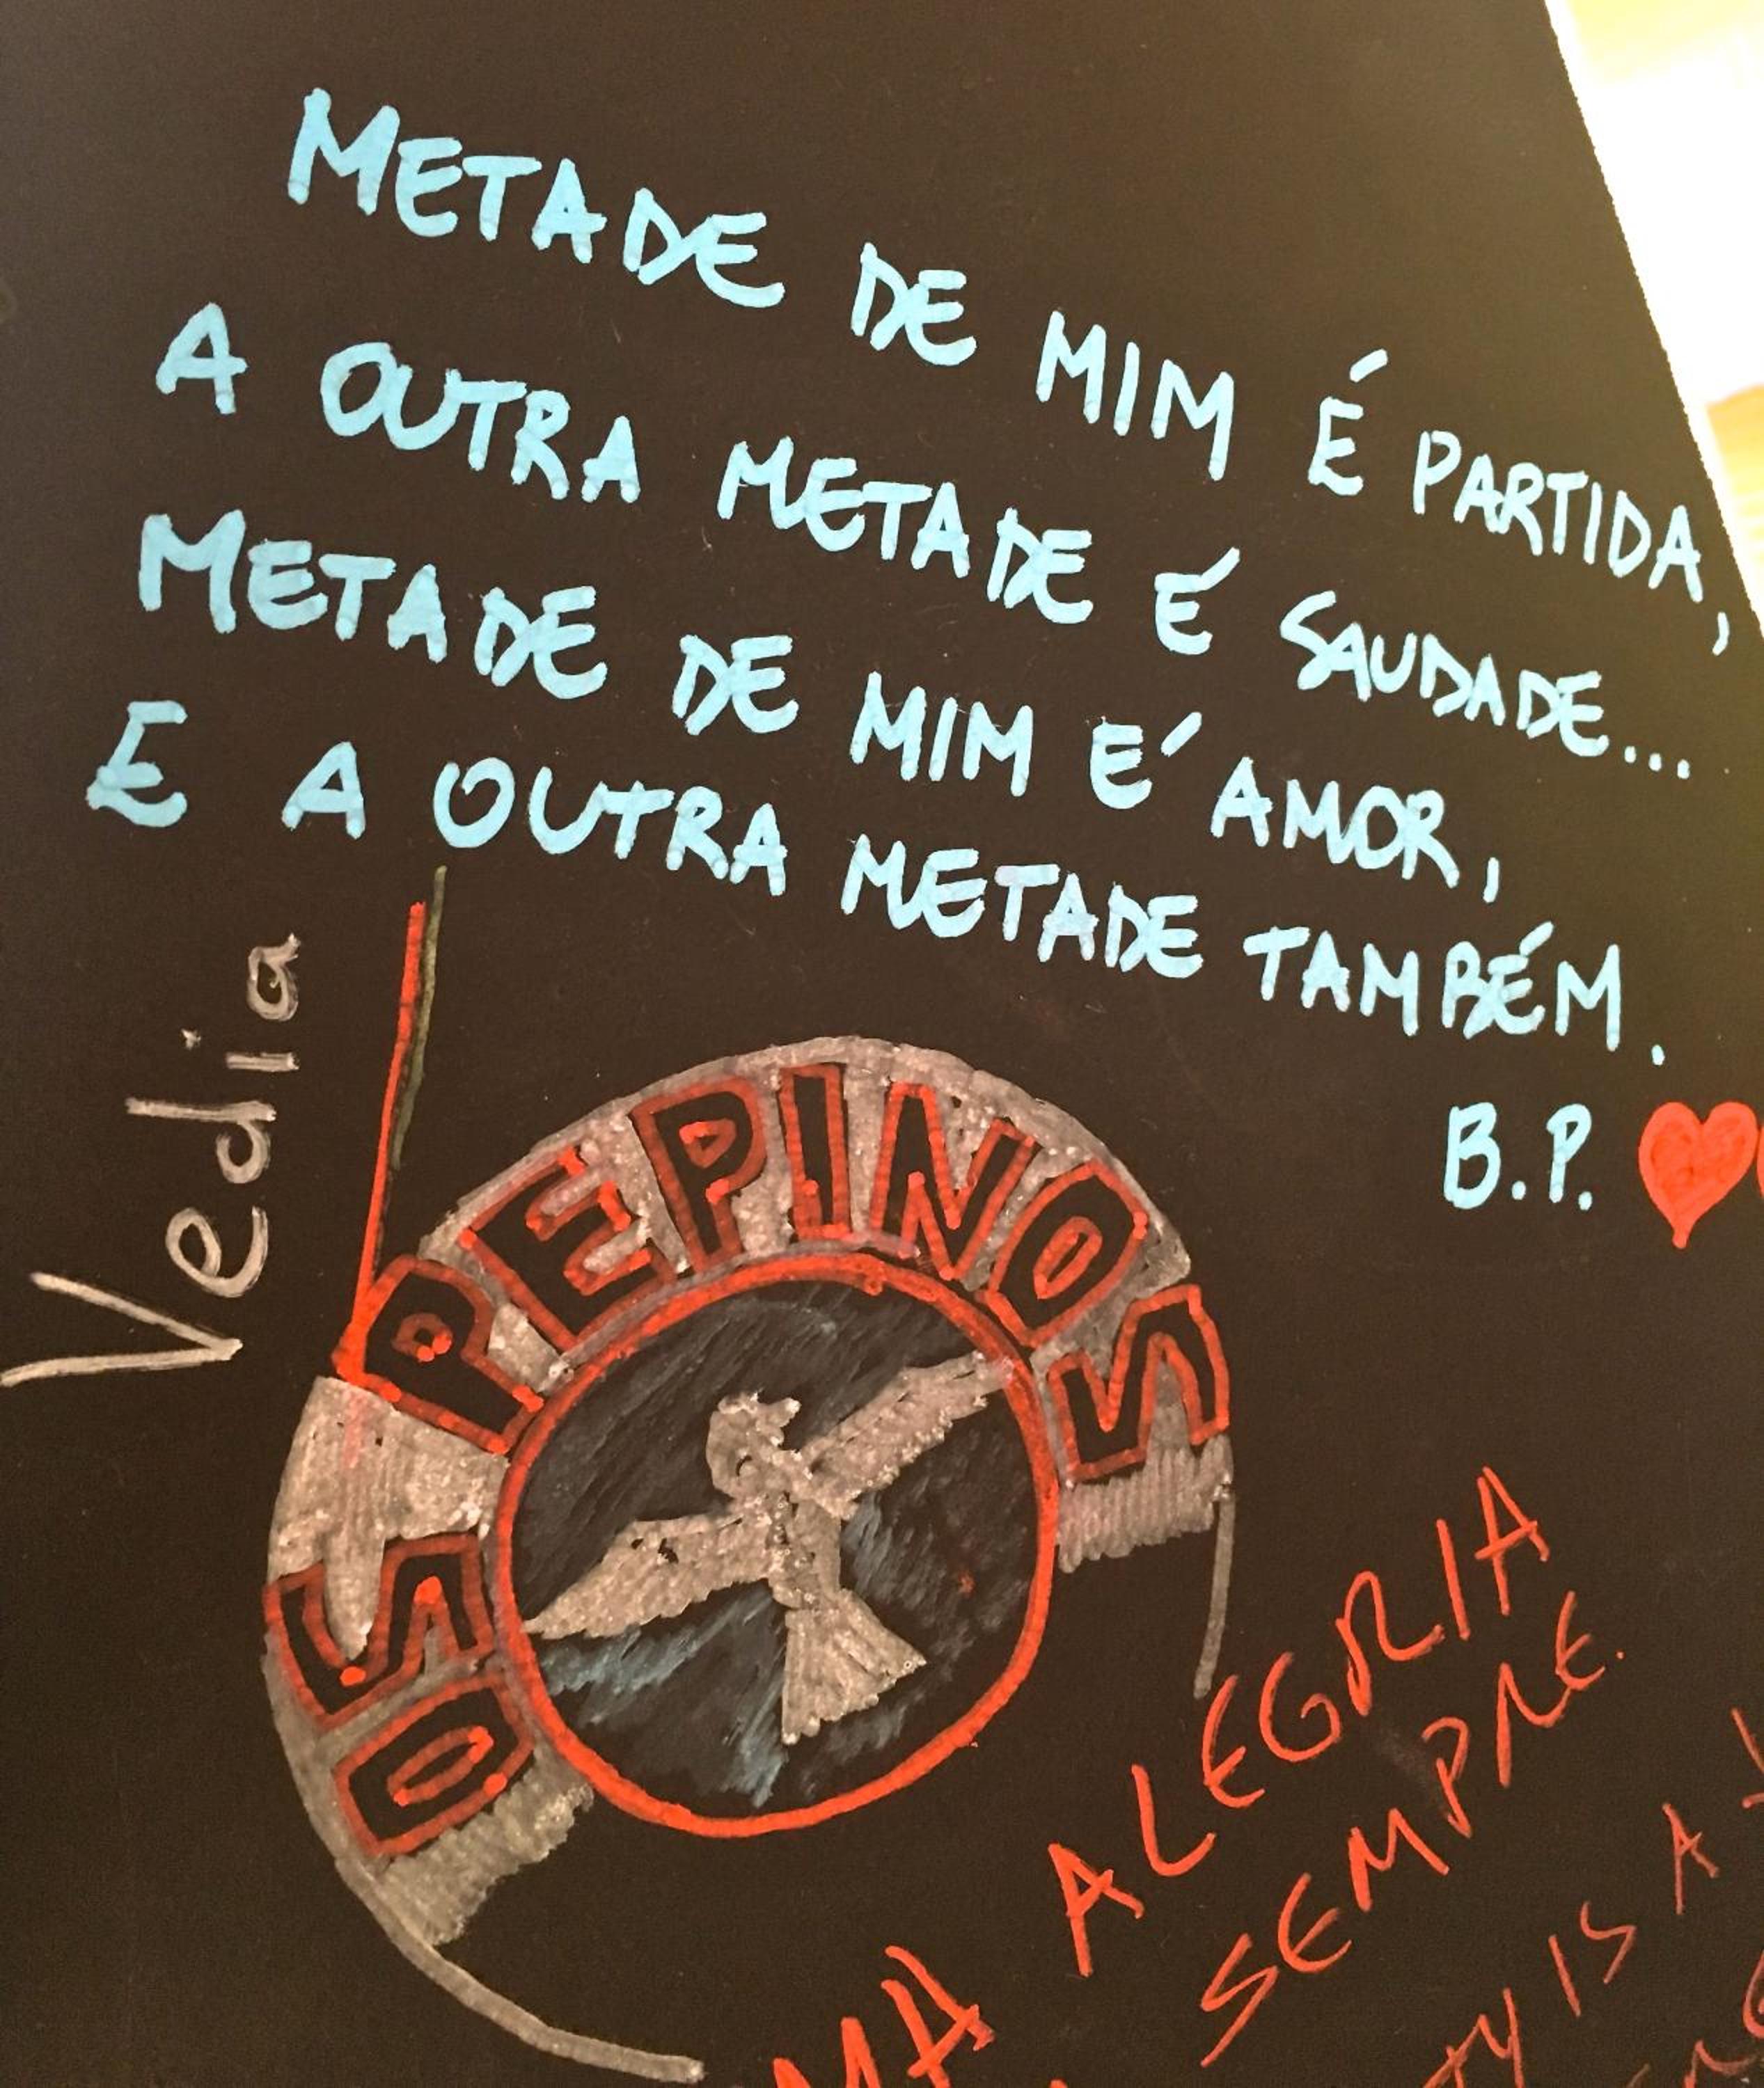 METADE DE MIM É PARTIDA,
A OUTRA METADE É SAUDADE...
METADE DE MIM É AMOR,
E A OUTRA METADE TAMBÉM.
B.P.
Vedia
OS PEPINOS
MA ALEGRIA
SEMPRE.
IS A